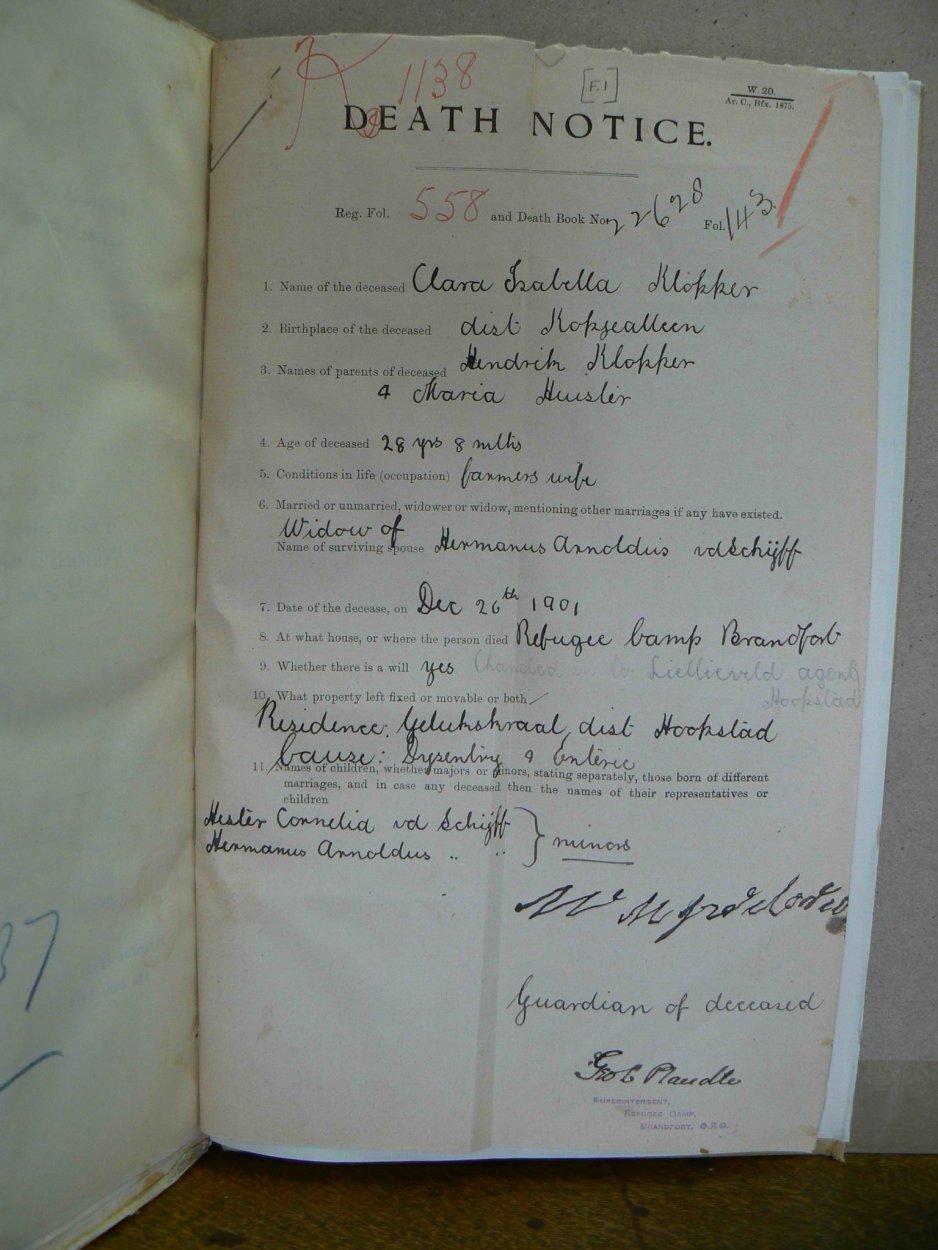 1138
[F.1]
W 20.
Ar. C., Bfx. 1875.
DEATH NOTICE.
Reg. Fol. 558 and Death Book No. 22628 Fol. 143.
1. Name of the deceased Clara Isabella Klopper
2. Birthplace of the deceased dist Kopjealleen
3. Names of parents of deceased Hendrik Klopper
& Maria
4. Age of deceased 28 yrs 8 mths
5. Conditions in life (occupation) farmers wife
6. Married or unmarried, widower or widow, mentioning other marriages if any have existed.
Widow of
Name of surviving spouse Hermanus Arnoldus vd Schijff
7. Date of the decease, on Dec 26th 1901
8. At what house, or where the person died Refugee Camp Brandfort
9. Whether there is a will yes (handed in to agent
Hoopstad
10. What property left fixed or movable or both
Residence: Gelukskraal, dist Hoopstad
Cause: Dysentry & Enteric
11. Names of children, whether majors or minors, stating separately, those born of different
marriages, and in case any deceased then the names of their representatives or
children
Hester Cornelia vd Schijff
Hermanus Arnoldus " " } minors
Guardian of deceased
SUPERINTENDENT,
REFUGEE CAMP,
BRANDFORT, O.R.C.
37